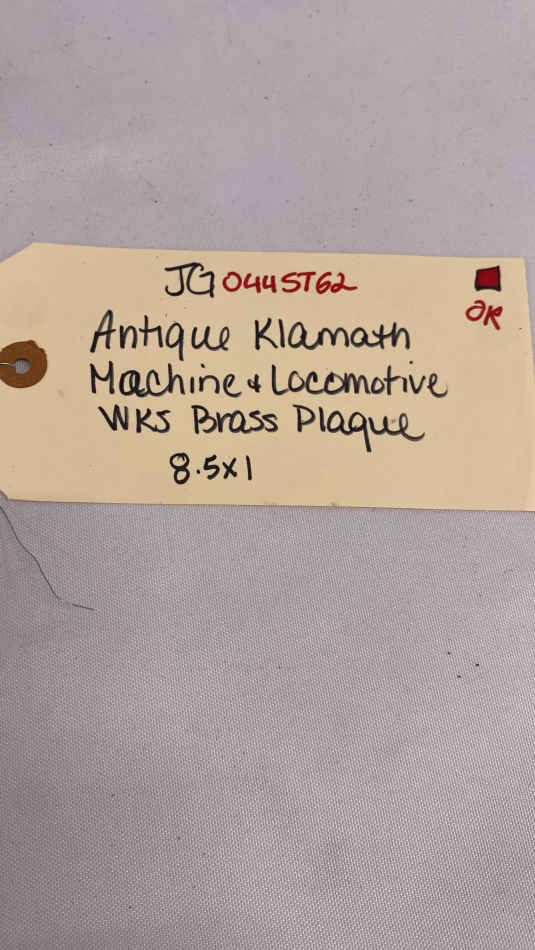 JG044ST62
JR
Antique Klamath
Machine & Locomotive
WKS Brass Plaque
8.5x1